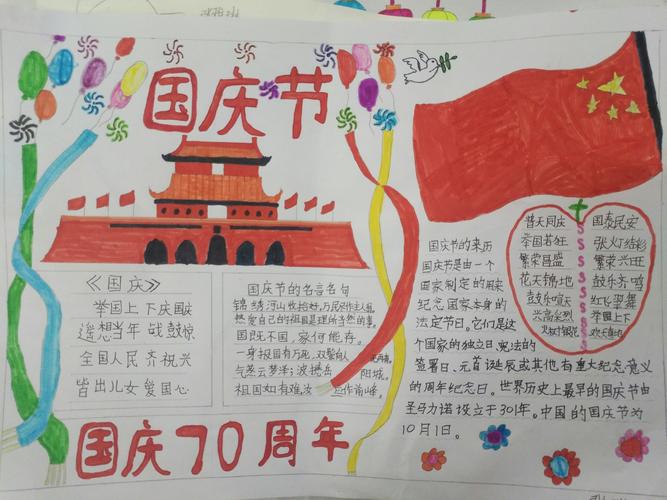 国庆节
《国庆》
举国上下庆国庆
遥想当年战鼓惊
全国人民齐祝兴
皆出儿女爱国心
国庆节的名言名句
锦绣河山收拾好,万民尽作主人翁
热爱自己的祖国是理所当然的事。
国既不国,家何能存。
一身报国有万死,双鬓向人
无再青。
气蒸云梦泽;波撼岳
阳城。
祖国如有难,汝
应作前峰。
国庆70周年
国庆节的来历
国庆节是由一个
国家制定的用来
纪念国家本身的
法定节日。它们是这
个国家的独立日、宪法的
签署日、元首诞辰或其他有重大纪念意义
的周年纪念日。世界历史上最早的国庆节由
圣马力诺设立于301年。中国的国庆节为
10月1日。
普天同庆
举国若狂
繁荣昌盛
花天锦地
鼓乐喧天
兴高采烈
火树银花
国泰民安
张灯结彩
繁荣兴旺
鼓乐齐鸣
红飞翠舞
举国上下
欢天喜地